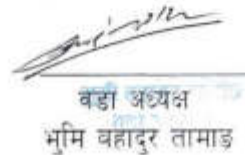 वडा अध्यक्ष
भुमि वहादुर तामाङ